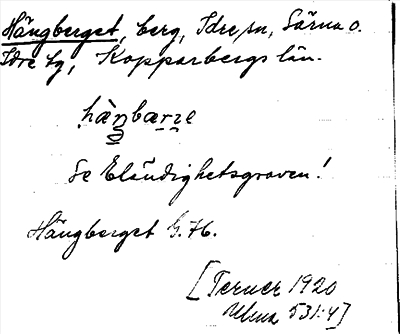 Hångberget, berg, Idre sn, Särna o.
Idre tg, Kopparbergs län.
hæ̀ŋbærɪe
Se Eländighetsgraven!
Hångberget G.K.
[Terner 1920
Ulma 531:4]